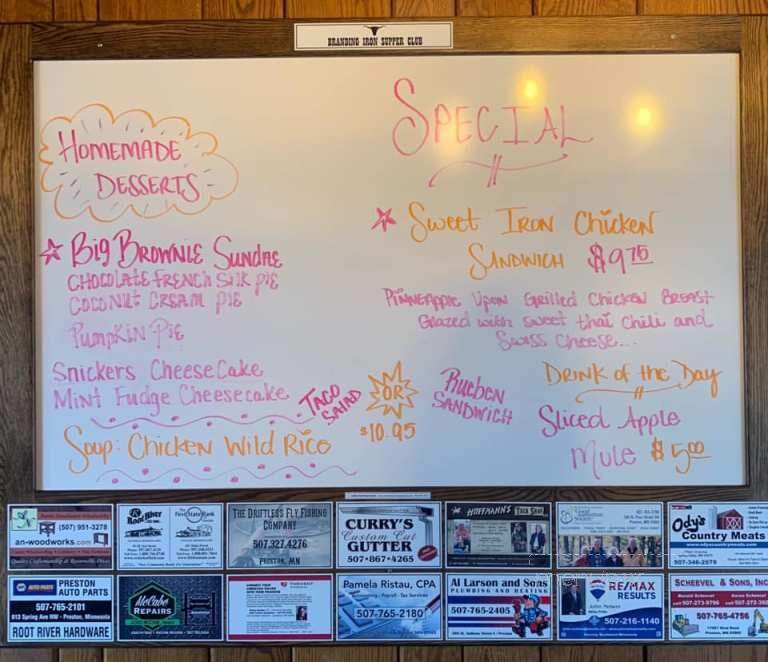 BRANDING IRON SUPPER CLUB
HOMEMADE
DESSERTS
BIG BROWNIE SUNDAE
CHOCOLATE FRENCH SILK PIE
COCONUT CREAM PIE
PUMPKIN PIE
Snickers CheeseCake
Mint Fudge Cheesecake
TACO
SALAD
OR
$10.95
Rueben
SANDWICH
Soup: Chicken Wild Rice
SPECIAL
Sweet Iron Chicken
SANDWICH $9.75
Pinneapple Upon Grilled Chicken Breast
Glazed with sweet thai chili and
Swiss Cheese...
DRINK of the Day
Sliced Apple
Mule $5.00
(507) 951-3278
an-woodworks.com
Root River
First State Bank
THE DRIFTLESS FLY FISHING
COMPANY
507.327.4276
PRESTON, MN
CURRY'S
Custom Cut
GUTTER
507-867-4265
HOFFMANN'S
Ody's
Country Meats
507-346-2579
NAPA AUTO PARTS
PRESTON
AUTO PARTS
507-765-2101
813 Spring Ave NW - Preston, Minnesota
ROOT RIVER HARDWARE
McCabe
REPAIRS
Pamela Ristau, CPA
507-765-2180
Al Larson and Sons
PLUMBING AND HEATING
507-765-2405
RE/MAX
RESULTS
507-216-1140
SCHEEVEL & SONS, INC
507-765-4756